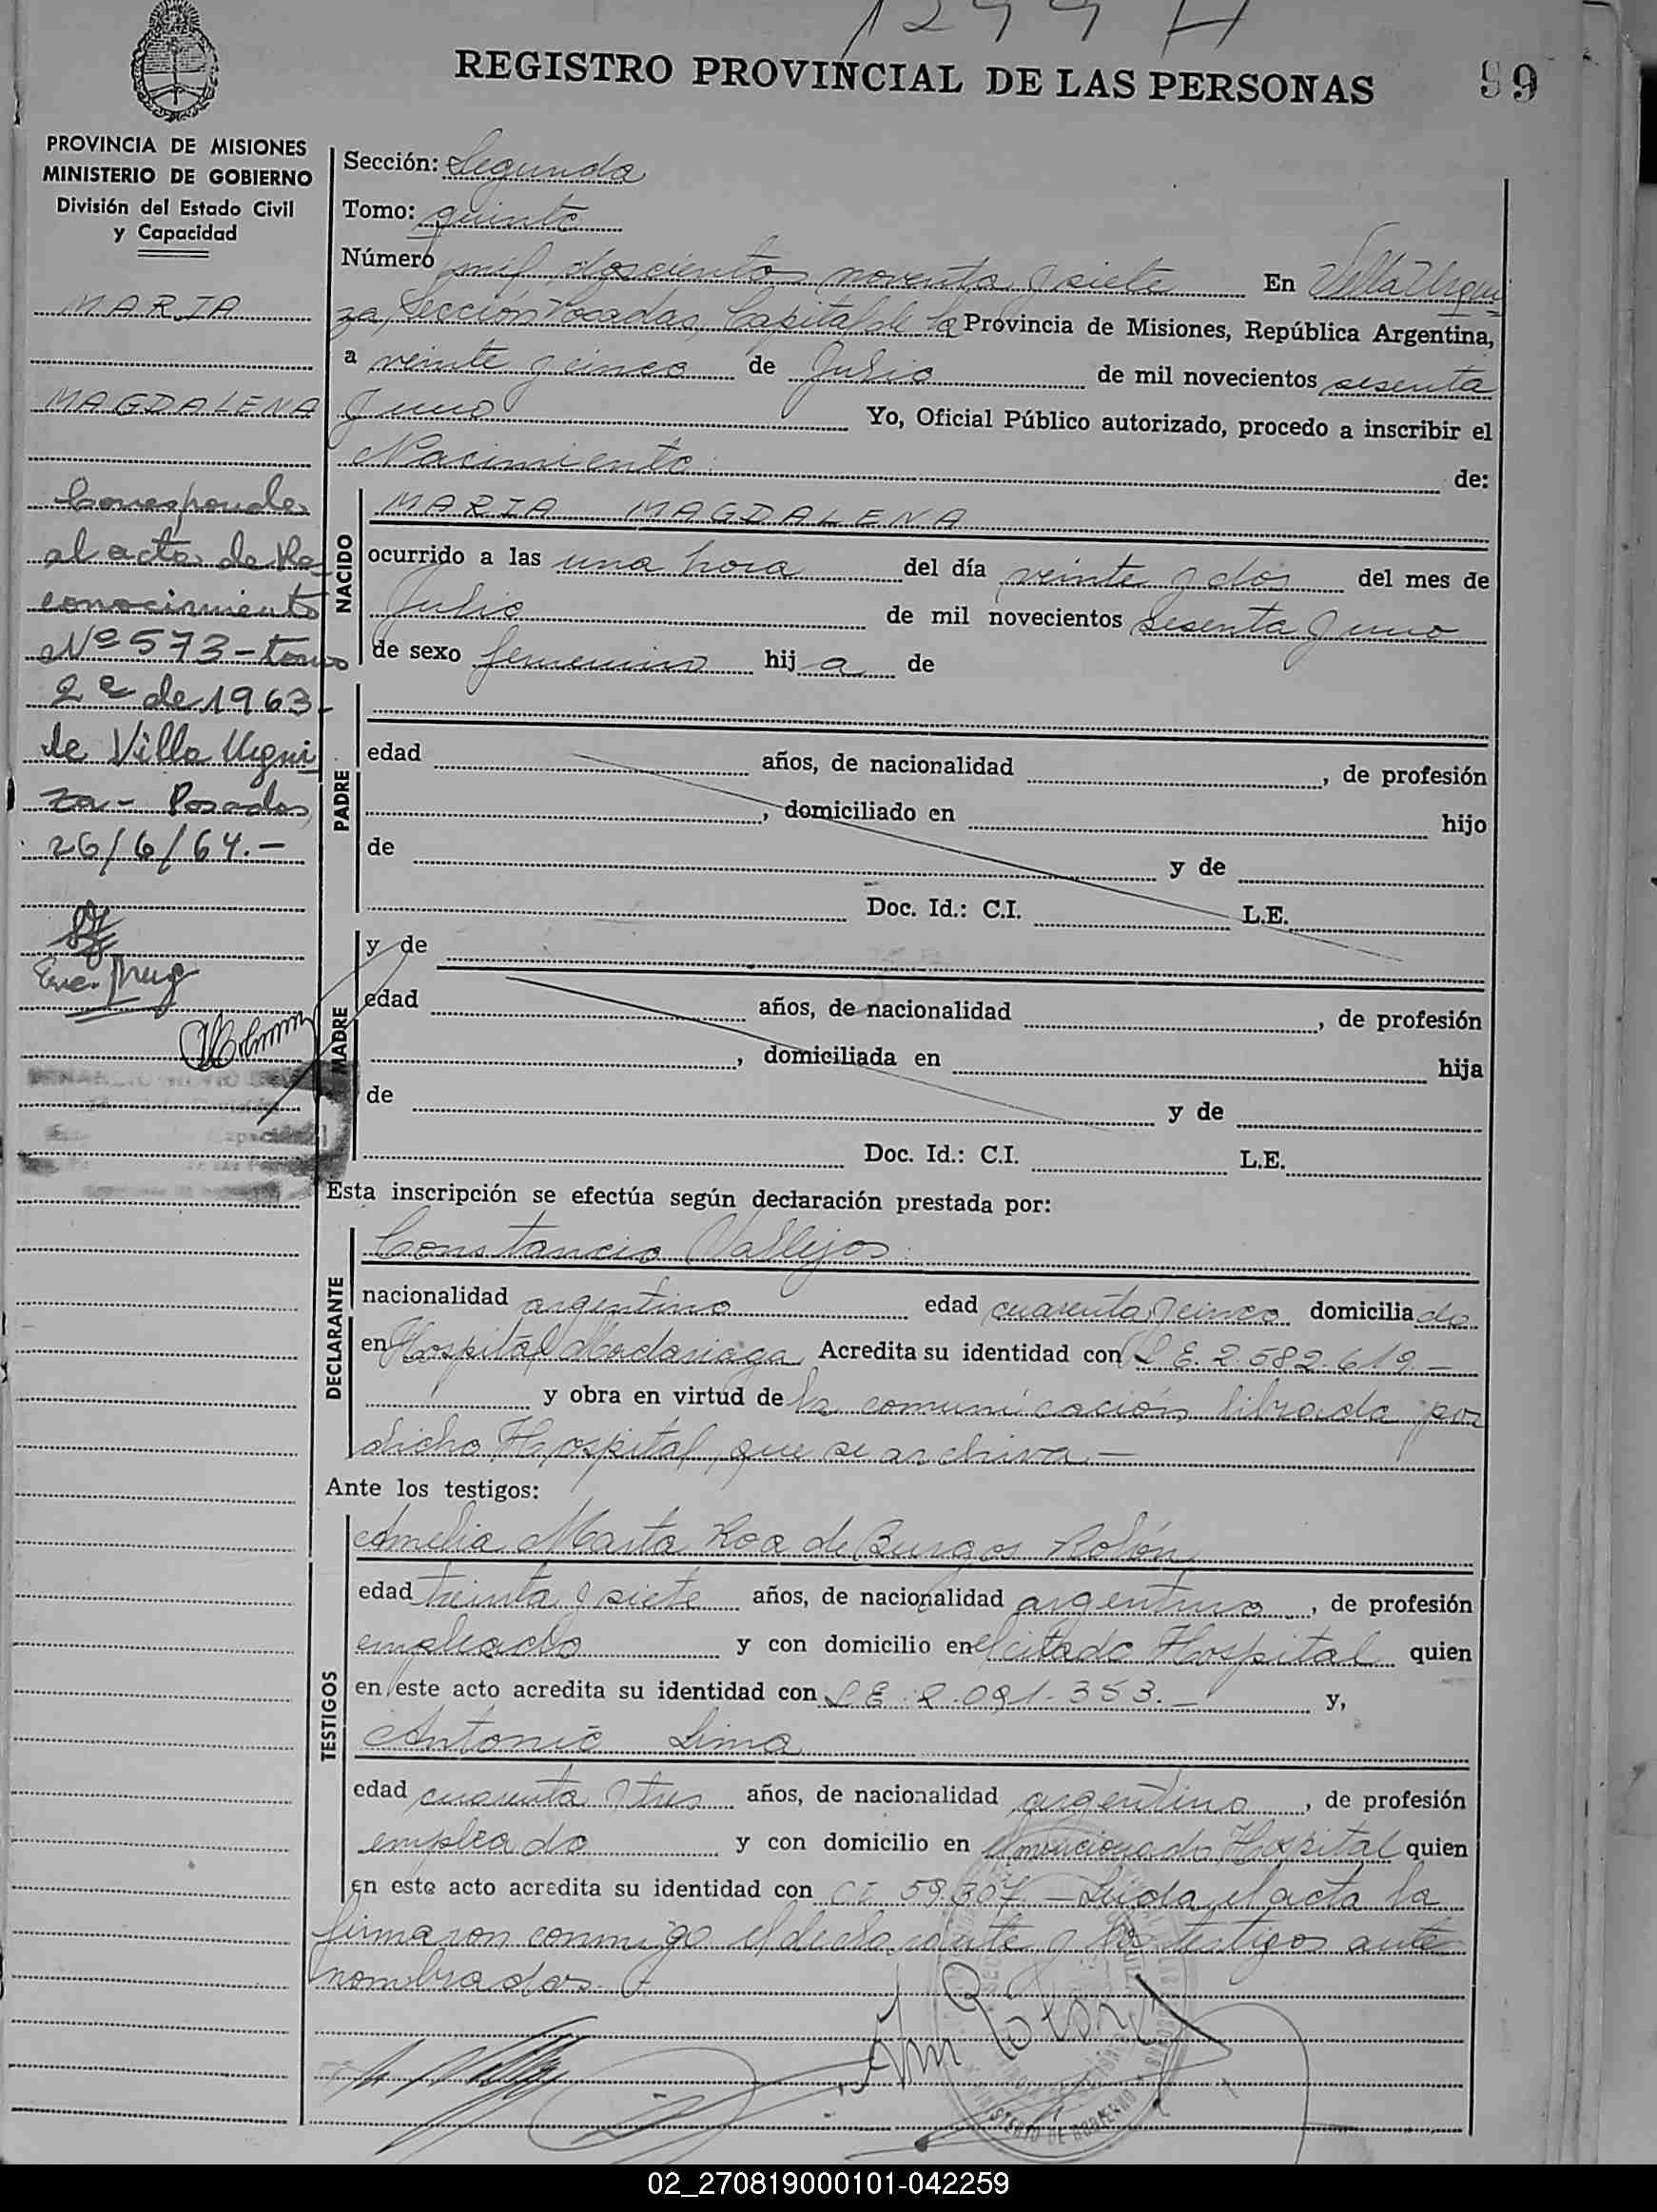 REGISTRO PROVINCIAL DE LAS PERSONAS
99
PROVINCIA DE MISIONES
MINISTERIO DE GOBIERNO
División del Estado Civil
y Capacidad
MARIA
MAGDALENA
Corresponde
al acta de Re
conocimiento
Nº 573 - tomo
2º de 1963-
de Villa Urqui
za - Posadas,
26/6/64.-
Sección: Segunda
Tomo: quinto
Número mil doscientos noventa y siete En Villa Urqui
za, Sección Posadas, Capital de la Provincia de Misiones, República Argentina,
a veinte y cinco de Julio de mil novecientos sesenta
y uno Yo, Oficial Público autorizado, procedo a inscribir el
Nacimiento de:
NACIDO
MARIA MAGDALENA
ocurrido a las una hora del día veinte y dos del mes de
Julio de mil novecientos sesenta y uno
de sexo femenino hij a de
PADRE
edad años, de nacionalidad , de profesión
, domiciliado en hijo
de y de
Doc. Id.: C.I. L.E.
MADRE
y de
edad años, de nacionalidad , de profesión
, domiciliada en hija
de y de
Doc. Id.: C.I. L.E.
Esta inscripción se efectúa según declaración prestada por:
DECLARANTE
Constancio Vallejos
nacionalidad argentino edad cuarenta y cinco domicilia do
en Hospital Madariaga Acredita su identidad con L E. 2.582.619.-
y obra en virtud de la comunicación librada por
dicho Hospital, que se archiva.-
Ante los testigos:
TESTIGOS
Amelia Marta Roa de Burgos Rolón
edad treinta y siete años, de nacionalidad argentina , de profesión
empleada y con domicilio en el citado Hospital quien
en este acto acredita su identidad con L E. 2.091.353.- y,
Antonio Lima
edad cuarenta y tres años, de nacionalidad argentino , de profesión
empleado y con domicilio en el mencionado Hospital quien
en este acto acredita su identidad con C.I. 59.307.- Leida el acta la
firmaron conmigo el declarante y los testigos ante
nombrados.
02_270819000101-042259